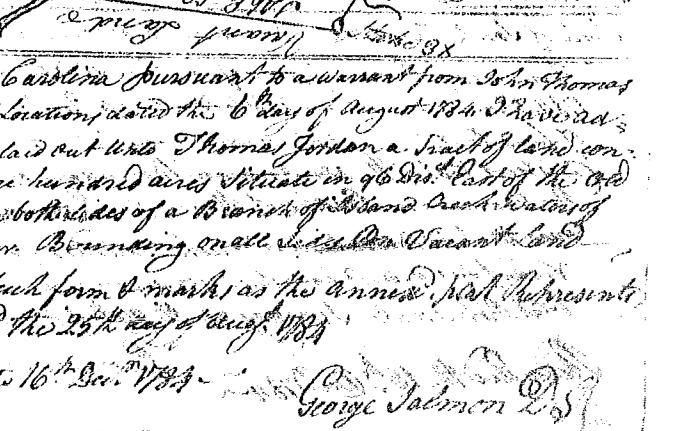 Vacant Land
Stake 3X
Carolina pursuant to a warrant from John Thomas
Locations dated the 6th day of August 1784. I have ad-
laid out unto Thomas Jordon a Tract of land con-
hundred acres Situate in 96 Dist. East of the Old
both sides of a Branch of Island Creek waters of
Bounding on all sides On Vacant Land
such form & marks as the annexd. plat Represents
the 25th day of Augt. 1784
16th Decr. 1784
George Salmon D S